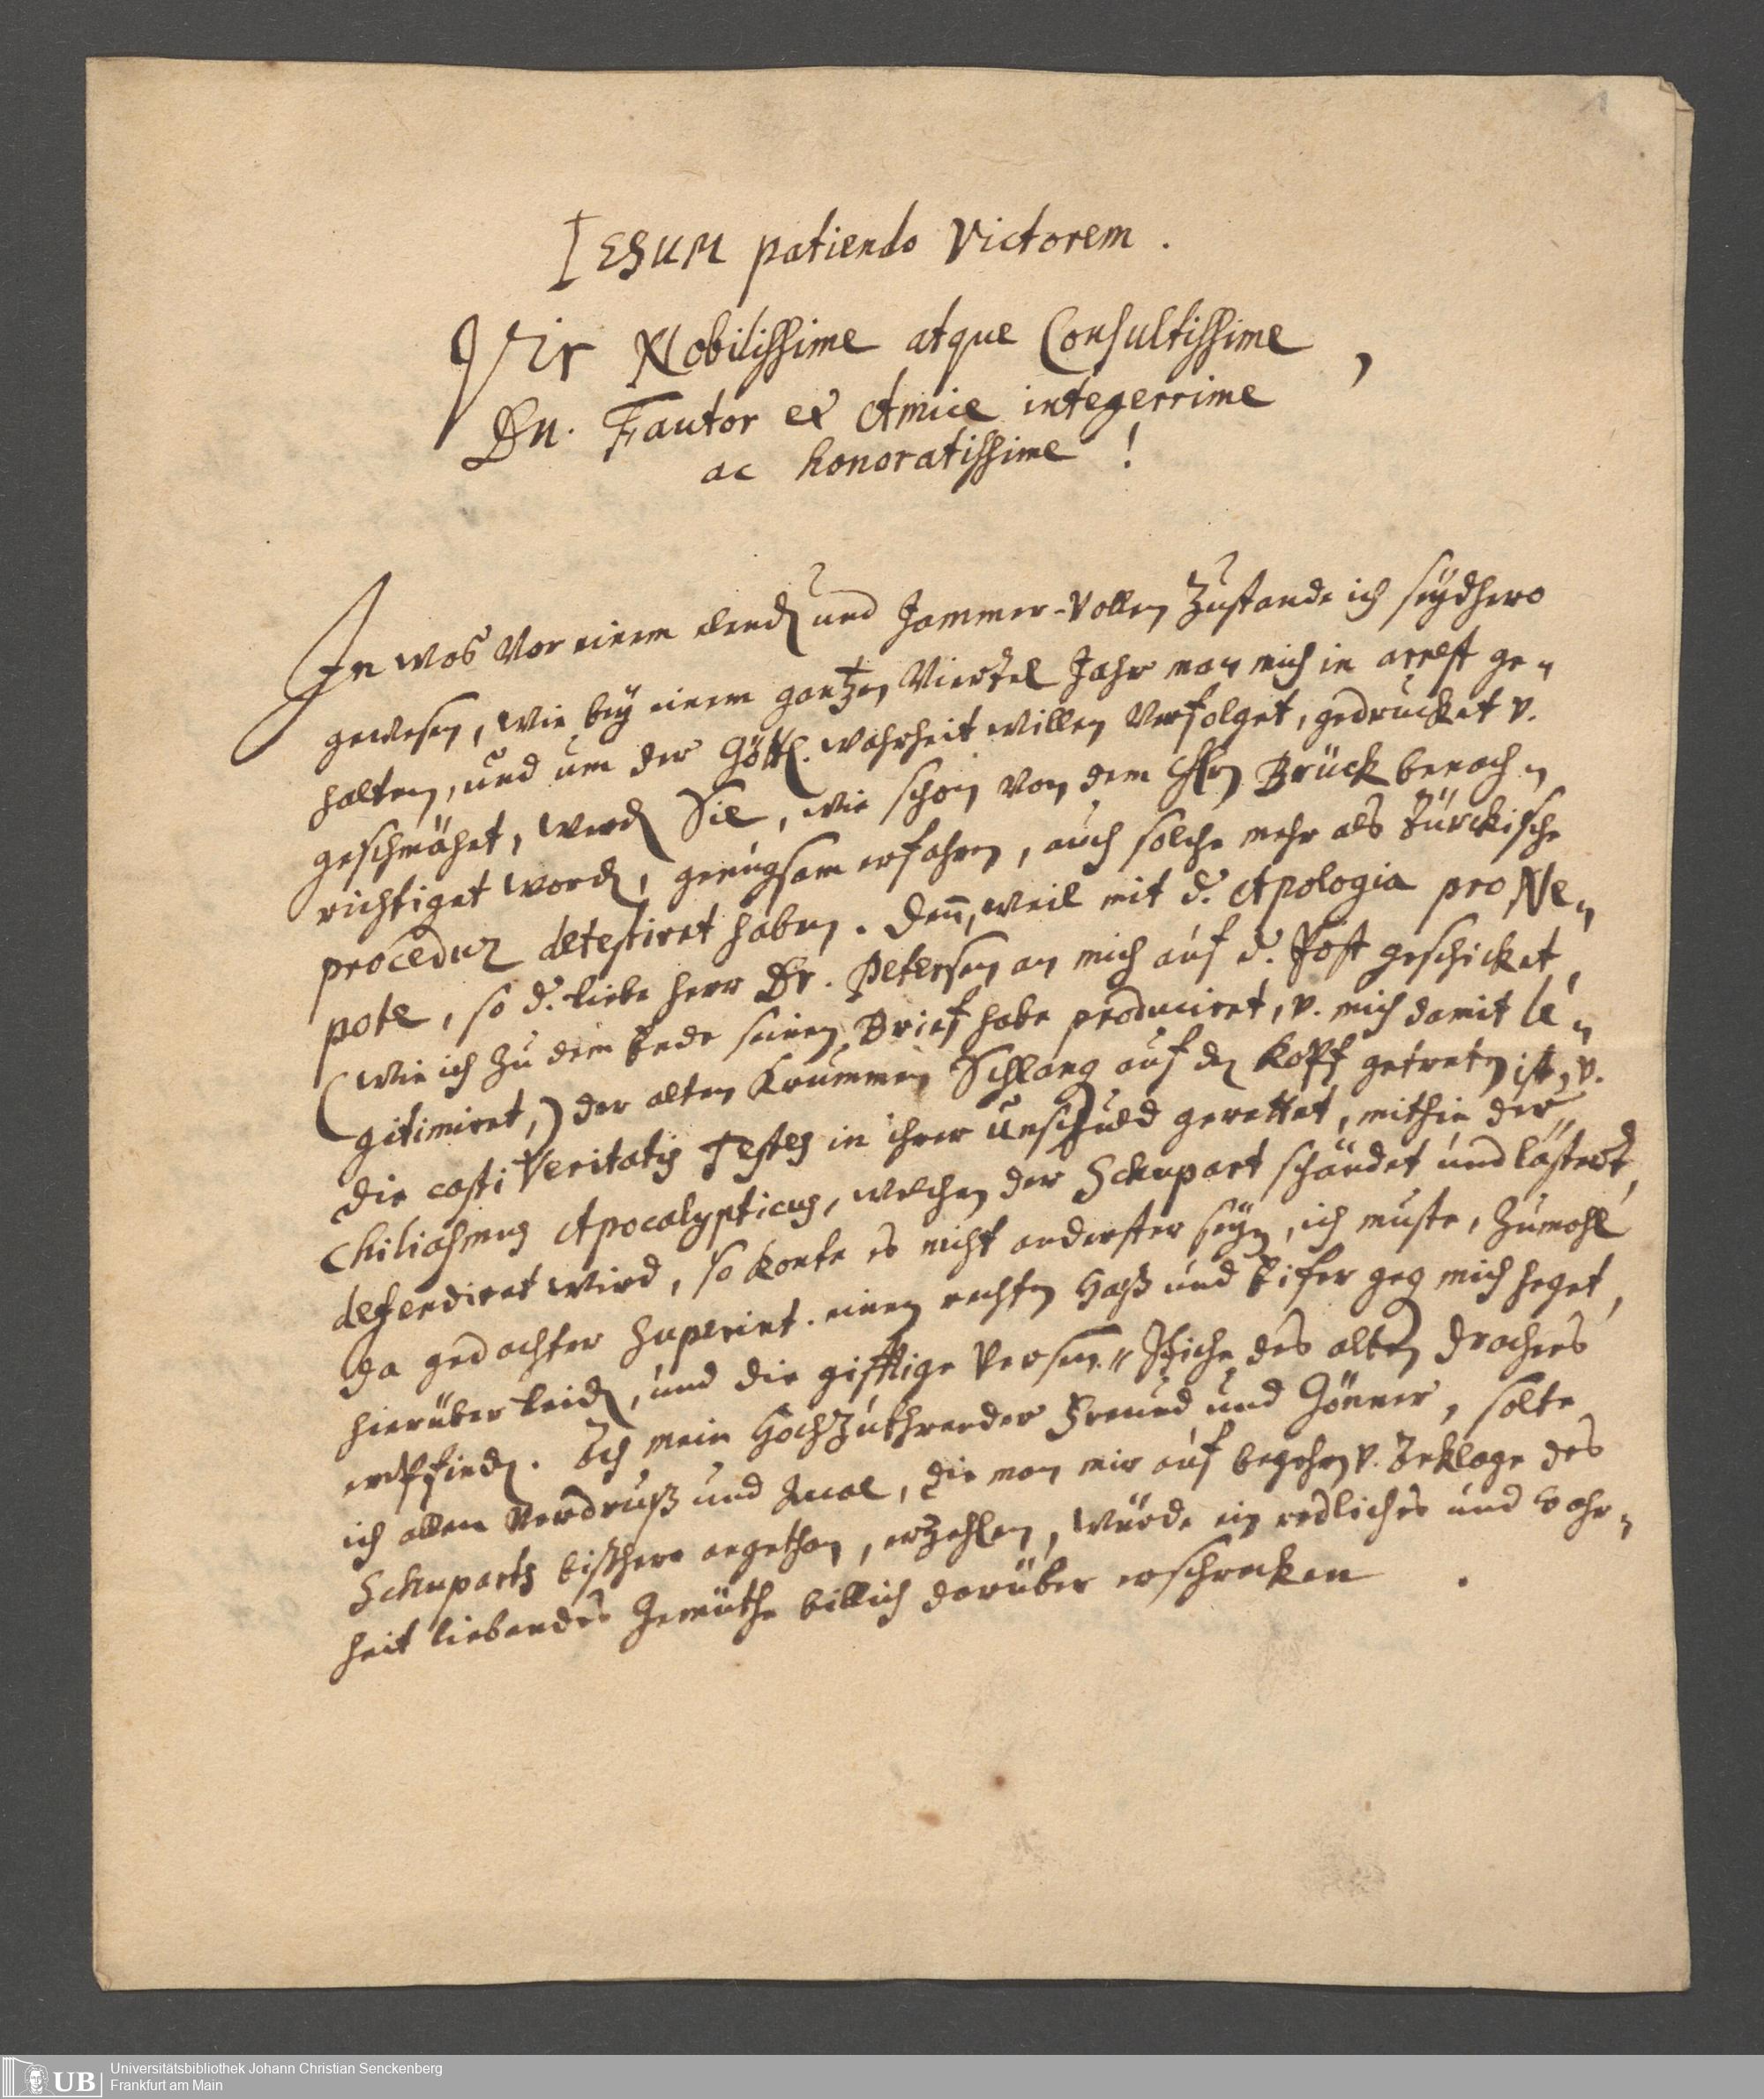 1
IESUM patiendo Victorem.
Vir Nobilissime atque Consultissime,
Dn. Fautor et Amice integerrime
ac honoratissime!
In was vor einem elend und Jammer-vollen Zustande ich seÿdhero
gewesen, wie beÿ einem gantzen Viertel Jahr man mich in arrest ge-
halten, und um der Göttl. wahrheit willen verfolget, gedrücket v.
geschmähet, werd Sie, wie schon von dem Hrn Brück benach-
richtiget word, genugsam erfahren, auch solche mehr als Türckische
procedur detestiret haben. Denn, weil mit d. Apologia pro Ne-
pote, so d. liebe Herr Dr. Petersen an mich auf d. Post geschicket,
(wie ich zu dem Ende seinen Brief habe produciret, v. mich damit le-
gitimiret,) der alten krummen Schlang auf den Kopf getreten ist, v.
die casti Veritatis Testes in ihrer Unschuld gerettet, mithin der
Chiliasmus Apocalypticus, welchen der Schupart schändet und lästert,
defendiret wird, so konte es nicht anderster seÿn, ich muste, zumahl
da gedachter Superint. einen rechten Haß und Eifer geg mich heget,
hierüber leid, und die gifftige Versen-Stiche des alten Drachens
empfind. Ich mein HochZuEhrender Freund und Gönner, solte
ich allen Verdruß und Qual, die man mir auf begehrn v. Anklage des
Schuparts bißhero angethan, erzehlen, würde ein redliches und wahr-
heit liebendes Gemüthe billich darüber erschrecken.
UB
Universitätsbibliothek Johann Christian Senckenberg
Frankfurt am Main